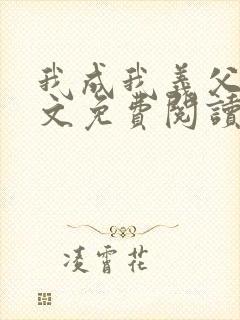 我成我義父
文免費閱讀
凌霄花